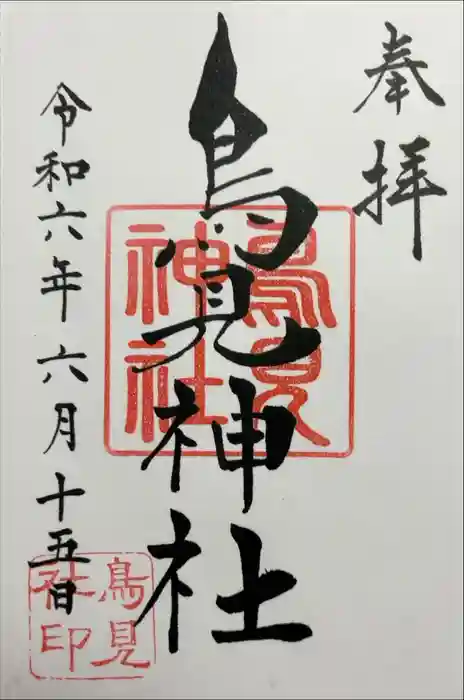 奉拝
鳥見神社
令和六年六月十五日
鳥見神社
鳥見社印